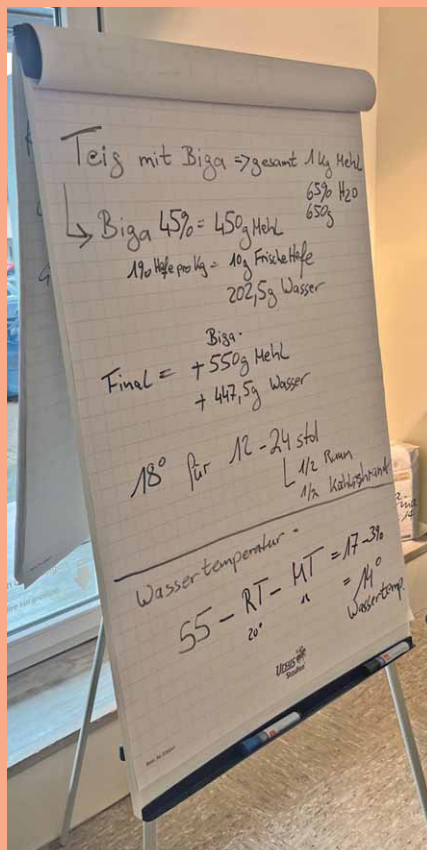 Teig mit Biga => gesamt 1 Kg Mehl
65% H2O
650g
Biga 45% = 450g Mehl
1% Hefe pro Kg = 10g Frische Hefe
202,5g Wasser
Biga
Final = + 550g Mehl
+ 447,5g Wasser
18° für 12-24 std
1/2 Raum
1/2
Wassertemperatur
55 - RT - MT = 17 - 3%
20°
= 14°
Wassertemp.
URSUS